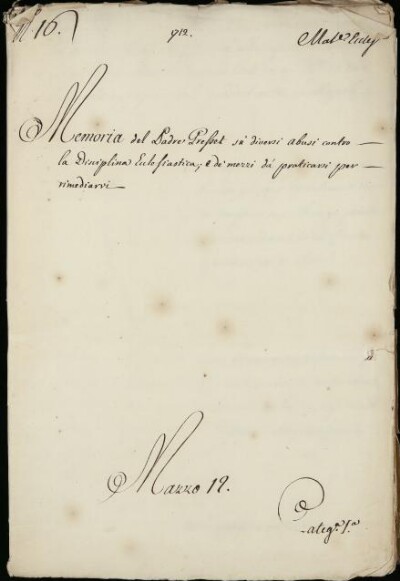 N. 16.
912.
Mat.e Eccl
Memoria del Padre Presset sù diversi abusi contro
la Disciplina Eclesiastica; e de' mezzi dà praticarsi per
rimediarvi
Marzo 12.
Categ.a 1.a